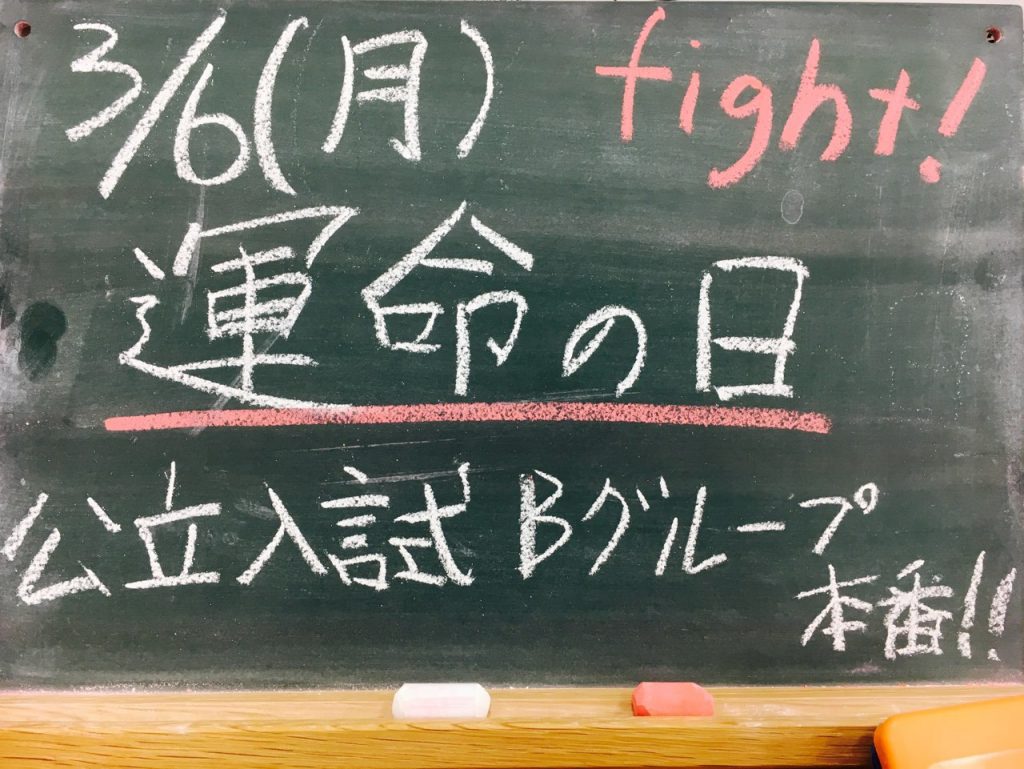 3/6(月) fight!
運命の日
公立入試 Bグループ
本番!!